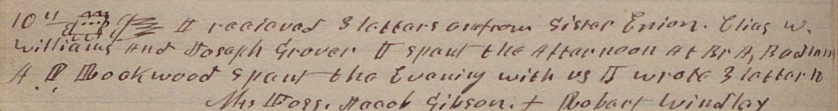 10th I recieved 3 latters onefrom Sister Enion. Elias W.
Williams and Joseph Grover I spent the Afternoon at Br A,
A P Rockwood spent the Evening with us I wrote 3 latter to
Mrs Foss. Jacob Gibson. + Robart Windlay